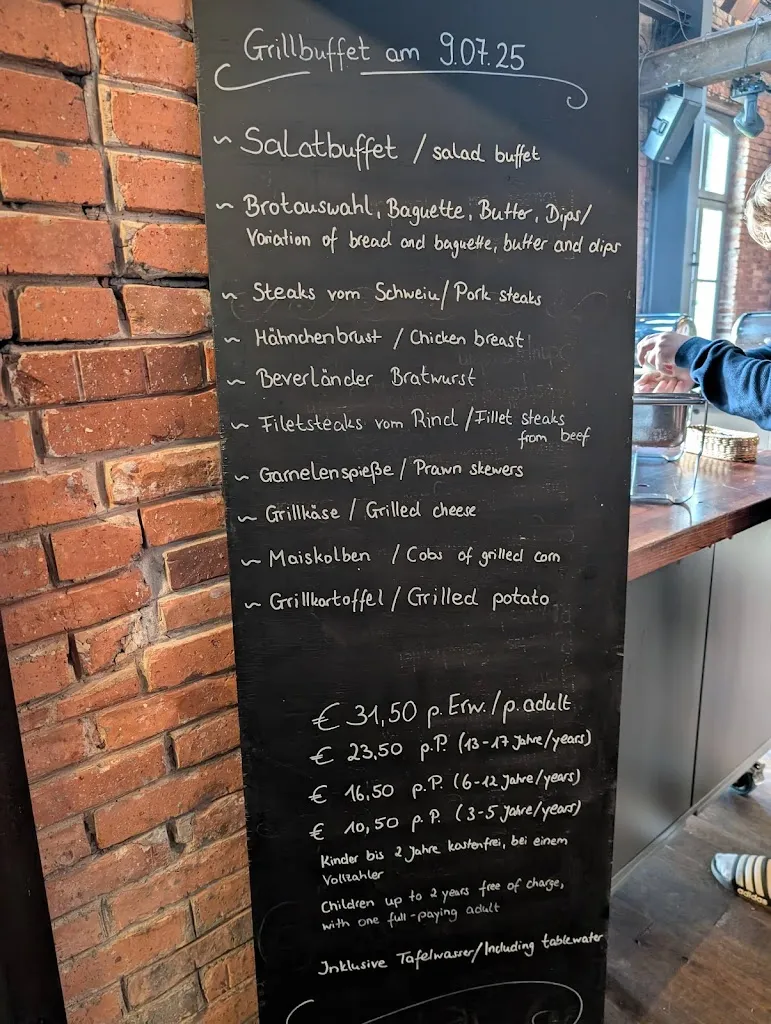 Grillbuffet am 9.07.25
~ Salatbuffet / salad buffet
~ Brotauswahl, Baguette, Butter, Dips/
Variation of bread and baguette, butter and dips
~ Steaks vom Schwein/ Pork steaks
~ Hähnchenbrust / Chicken breast
~ Beverländer Bratwurst
~ Filetsteaks vom Rind /Fillet steaks
from beef
~ Garnelenspieße / Prawn skewers
~ Grillkäse / Grilled cheese
~ Maiskolben / Cobs of grilled corn
~ Grillkartoffel / Grilled potato
€ 31,50 p. Erw./p. adult
€ 23,50 p.P. (13-17 Jahre/years)
€ 16,50 p.P. (6-12 Jahre/years)
€ 10,50 p.P. (3-5 Jahre/years)
Kinder bis 2 Jahre kostenfrei, bei einem
Vollzahler
Children up to 2 years free of charge,
with one full-paying adult
Inklusive Tafelwasser/Including tablewater